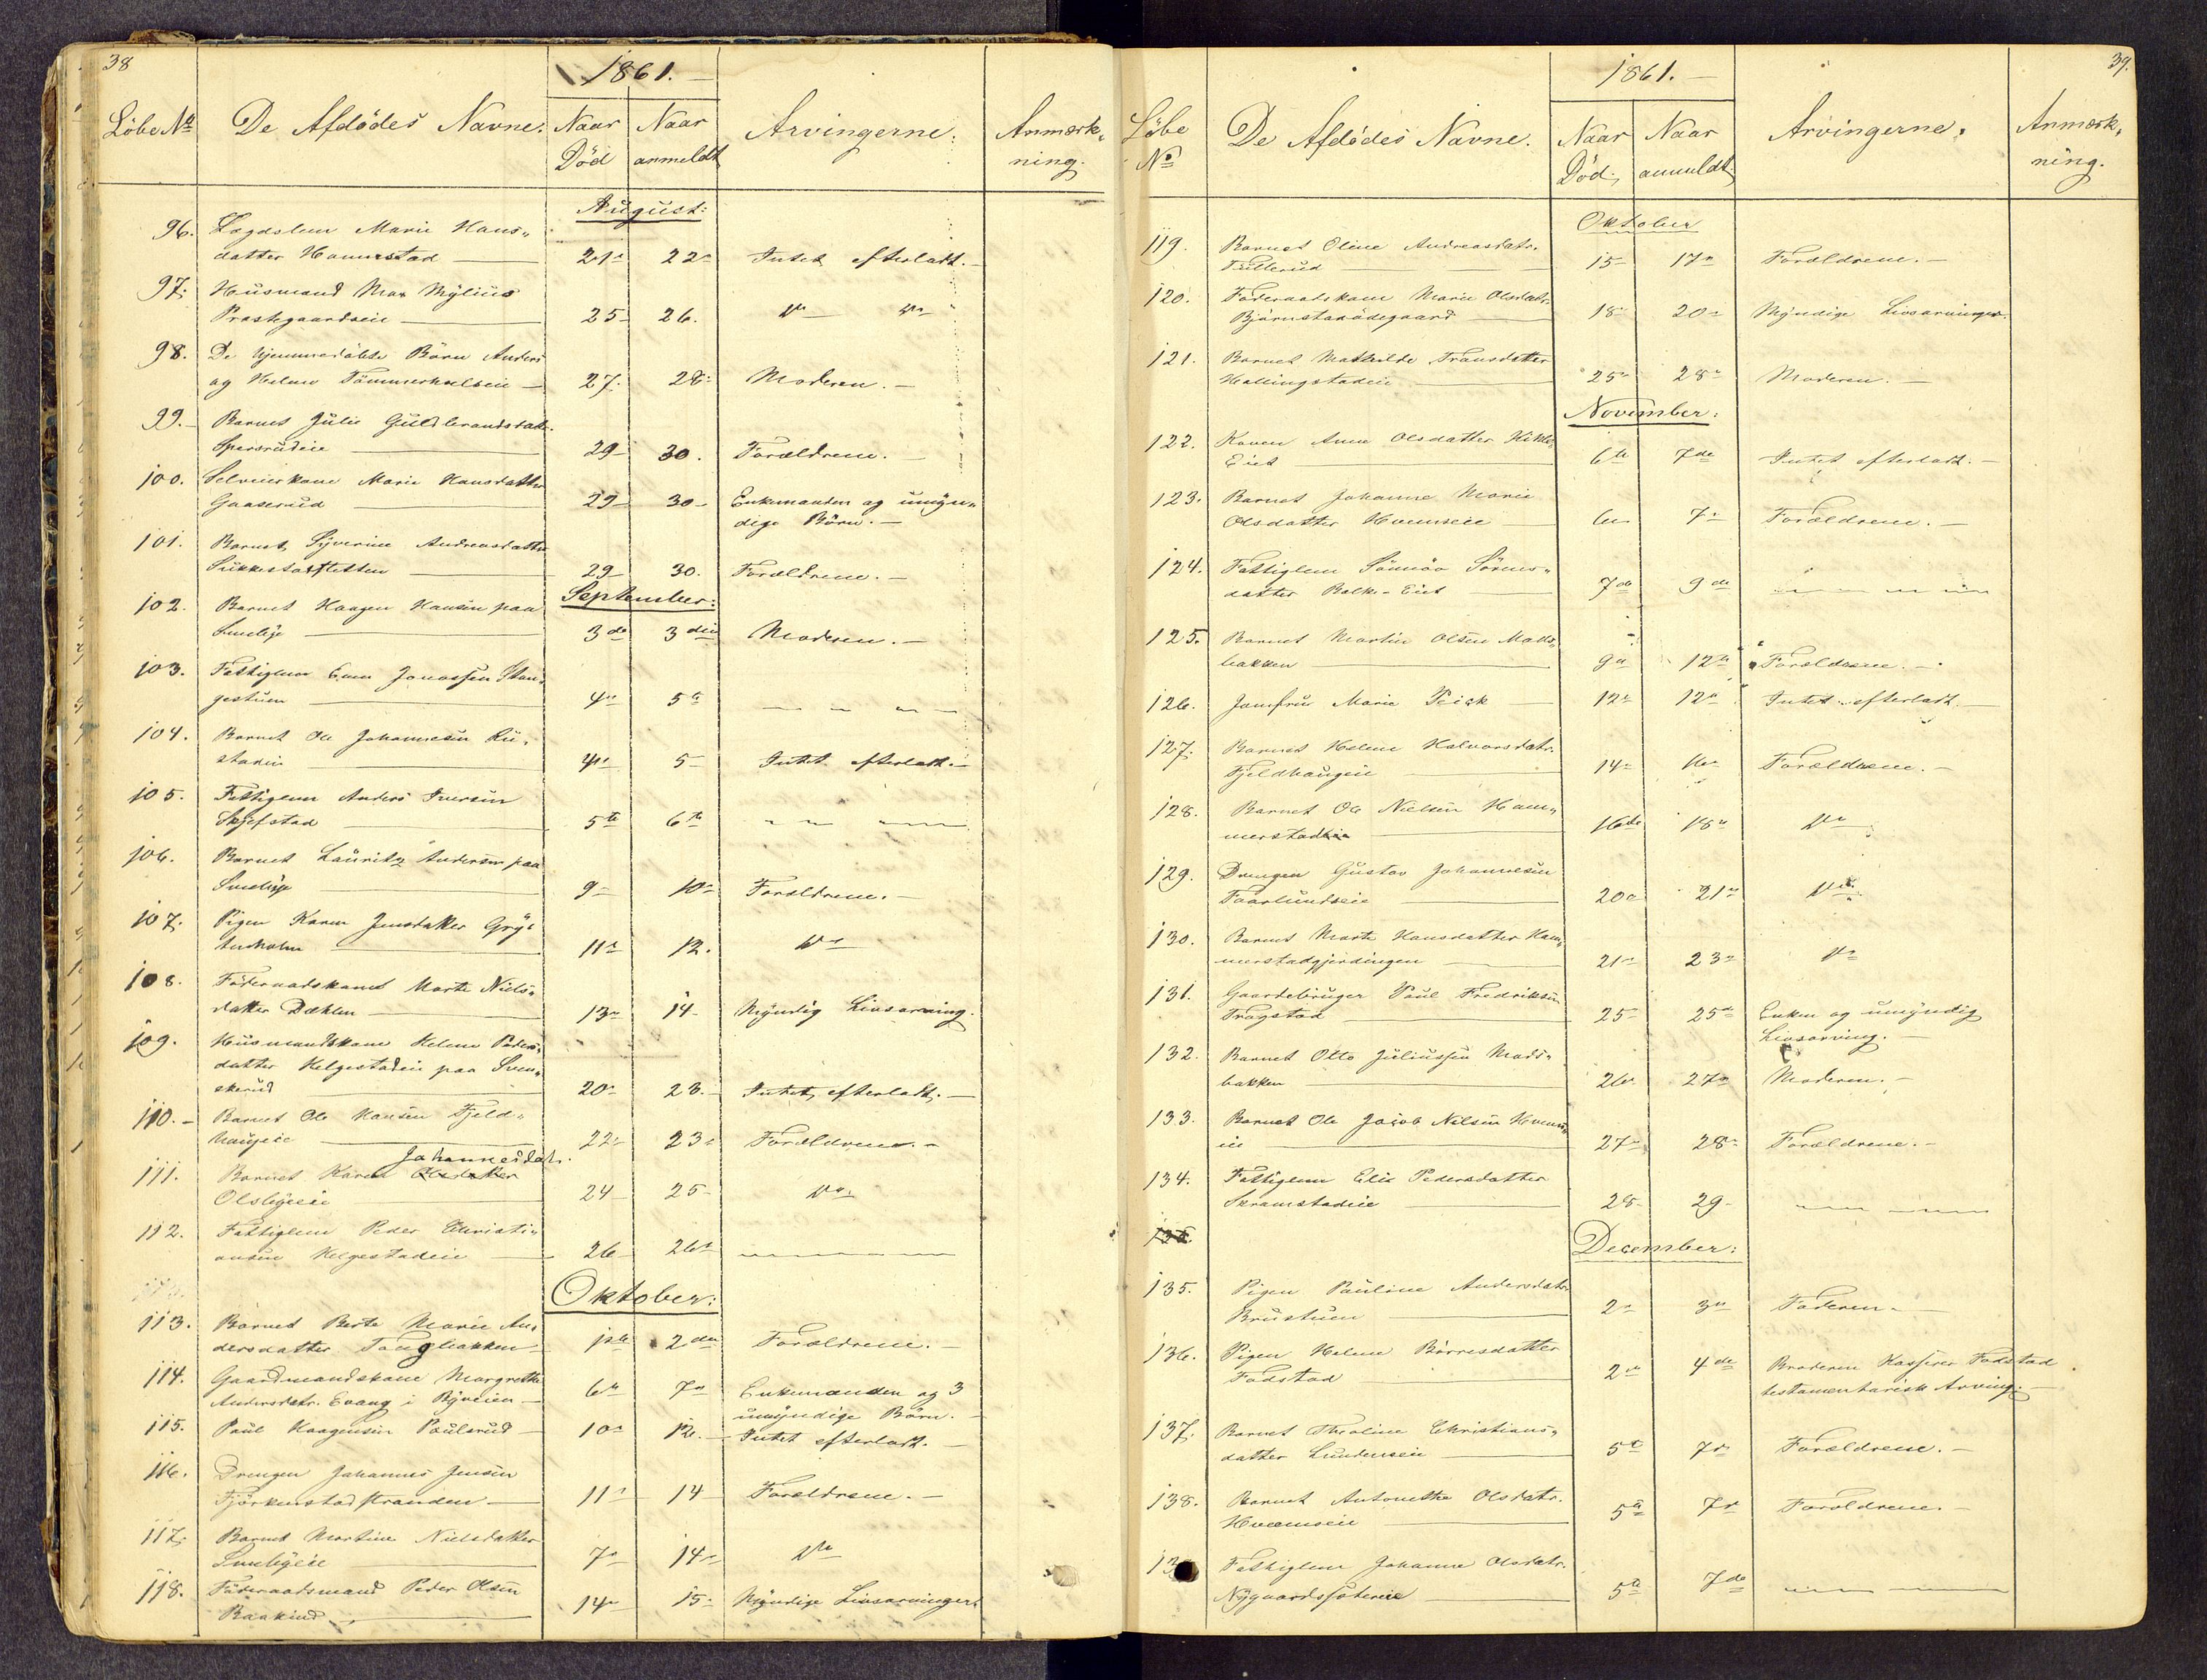 38
1861.
Löbe No De Afdödes Navne. Naar Död Naar anmeldt Arvingerne. Anmærkning.
August:
96. Lægdslem Marie Hans-
datter Hammerstad 21. 22. Intet efterladt.
97. Husmand Max Mylius
Præstegaardseie 25 26. do do
98. De hjemmedöbte Börn Anders
og Helene Tömmerholseie 27. 28. Moderen.
99. Barnet Julie Guldbrandsdatt.
Spersrudeie 29 30. Forældrene.
100. Selveierkone Marie Hansdatter
Gaaserud 29 30 Enkemanden og umyn-
dige Börn.
101. Barnet Syverine Andreasdatter
Sukkestadsletten 29 30. Forældrene.
September:
102. Barnet Haagen Hansen paa
Smeby 3de 3die Moderen.
103. Fattiglem Even Jonassen Stan-
gestuen 4 5
104. Barnet Ole Johannesen Ru-
stadeie 4 5 Intet efterladt.
105. Fattiglem Anders Iversen
Skjefstad 5te 6te
106. Barnet Lauritz Andersen paa
Smeby 9 10 Forældrene.
107. Pigen Karen Jensdatter Gry-
tinholm 11 12. do
108. Föderaadskone Marte Niels-
datter Dæhlen 13 14 Myndig Livsarving.
109. Husmandskone Helene Peders-
datter Helgestadeie paa Sven-
skerud 20 23. Intet efterladt.
110. Barnet Ole Hansen Fjeld-
haugeie 22 23 Forældrene.
Johannesdatr.
111. Barnet Karen Olsdatter
Olsbyeie 24 25 do
112. Fattiglem Peder Christi-
ansen Helgestadeie 26 26
Oktober:
113. Barnet Berte Marie An-
dersdatter Taugbakken 1ste 2den Forældrene.
114. Gaardmandskone Margrethe
Andersdatr. Evang i Byveien 6 7 Enkemanden og 3
umyndige Börn.
115. Paul Haagensen Paulsrud 10 12. Intet efterladt.
116. Drengen Johannes Jensen
Fjörkenstadstranden 11 14 Forældrene.
117. Barnet Martine Nielsdatter
Smebyeie 7 14 do
118. Föderaadsmand Peder Olsen
Baakind 14 15. Myndige Livsarvinger.
39.
1861.
Löbe No De Afdödes Navne. Naar Död. Naar anmeldt Arvingerne. Anmærkning.
Oktober
119. Barnet Oline Andreasdatr.
Tullerud 15 17 Forældrene.
120. Föderaadskone Marie Olsdatr.
Björnstadödegaard 18 20 Myndige Livsarvinger.
121. Barnet Mathilde Fransdatter
Hallingstadeie 25 28 Moderen.
November:
122. Konen Anne Olsdatter
Eiet 6te 7de Intet efterladt.
123. Barnet Johanne Marie
Olsdatter Hvemseie 6 7 Forældrene.
124. Fattiglem Sönnöv Sörens-
datter Balke-Eiet 7de 9de
125. Barnet Martin Olsen Mads-
bakken 9 12 Forældrene.
126. Jomfru Marie Peick 12 12 Intet efterladt.
127. Barnet Helene Halvorsdatr.
Fjeldhaugeie 14 16 Forældrene.
128. Barnet Ole Nielsen Ham-
merstadeie 16de 18 do
129. Drengen Gustav Johannesen
Faarlundseie 20 21 do
130. Barnet Marte Hansdatter Ham-
merstadgjerdingen 21 23 do
131. Gaardebruger Poul Fredriksen
Tragstad 25 25 Enken og umyndig
Livsarving.
132. Barnet Otto Juliussen Mads-
bakken 26 27 Moderen.
133. Barnet Ole Jacob Nilsen Hvems-
eie 27 28 Forældrene.
134. Fattiglem Elie Pedersdatter
Skramstadeie 28 29
135.
December:
135. Pigen Pauline Andersdatr.
Brustuen 2 3 Faderen.
136. Pigen Helene Börresdatter
Fodstad 2 4de Broderen Kasserer Fodstad
testamentarisk Arving.
137. Barnet Theoline Christians-
datter Lundenseie 5te 7 Forældrene.
138. Barnet Antonette Olsdatr.
Hveemseie 5 7 Forældrene.
13 Fattiglem Johanne Olsdatr.
Nygaardssætereie 5te 7de